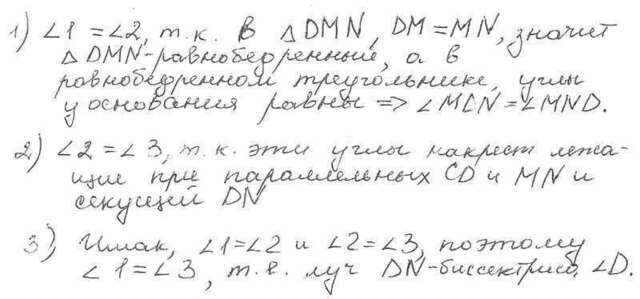 1) ∠1 = ∠2, т.к. в △DMN, DM = MN, значит
△DMN-равнобедренный, а в
равнобедренном треугольнике углы
у основания равны => ∠MDN = ∠MND.
2) ∠2 = ∠3, т.к. эти углы накрест лежа-
щие при параллельных CD и MN и
секущей DN
3) Итак, ∠1=∠2 и ∠2=∠3, поэтому
∠1=∠3, т.е. луч DN-биссектриса ∠D.